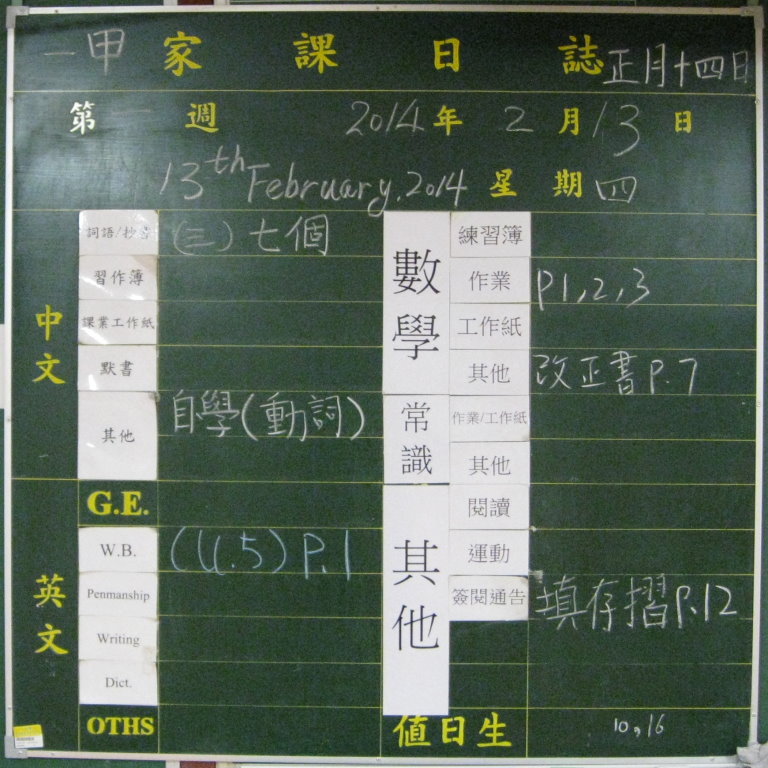 一甲 家課日誌 正月十四日
第 週 2014年 2月13日
13th February, 2014 星期四
中文
詞語/抄書 (三) 七個
習作簿
課業工作紙
默書
其他 自學(動詞)
英文
G.E.
W.B. (U.5) P.1
Penmanship
Writing
Dict.
OTHS
數學
練習簿
作業 P1,2,3
工作紙
其他 改正書P.7
常識
作業/工作紙
其他
其他
閱讀
運動
簽閱通告 填存摺P.12
值日生 10,16